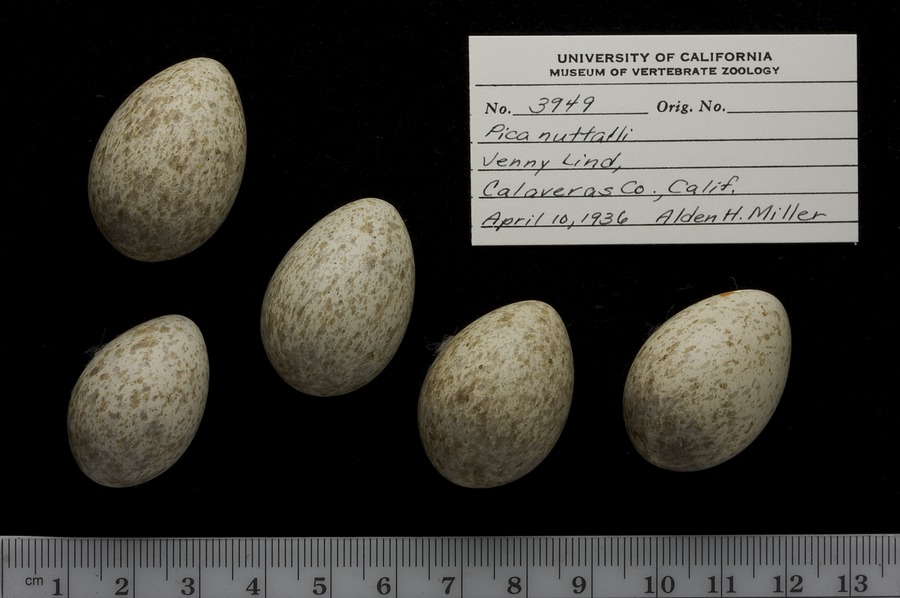 UNIVERSITY OF CALIFORNIA
MUSEUM OF VERTEBRATE ZOOLOGY
No. 3949 Orig. No.
Pica nuttalli
Jenny Lind,
Calaveras Co., Calif.
April 10, 1936 Alden H. Miller
cm 1 2 3 4 5 6 7 8 9 10 11 12 13